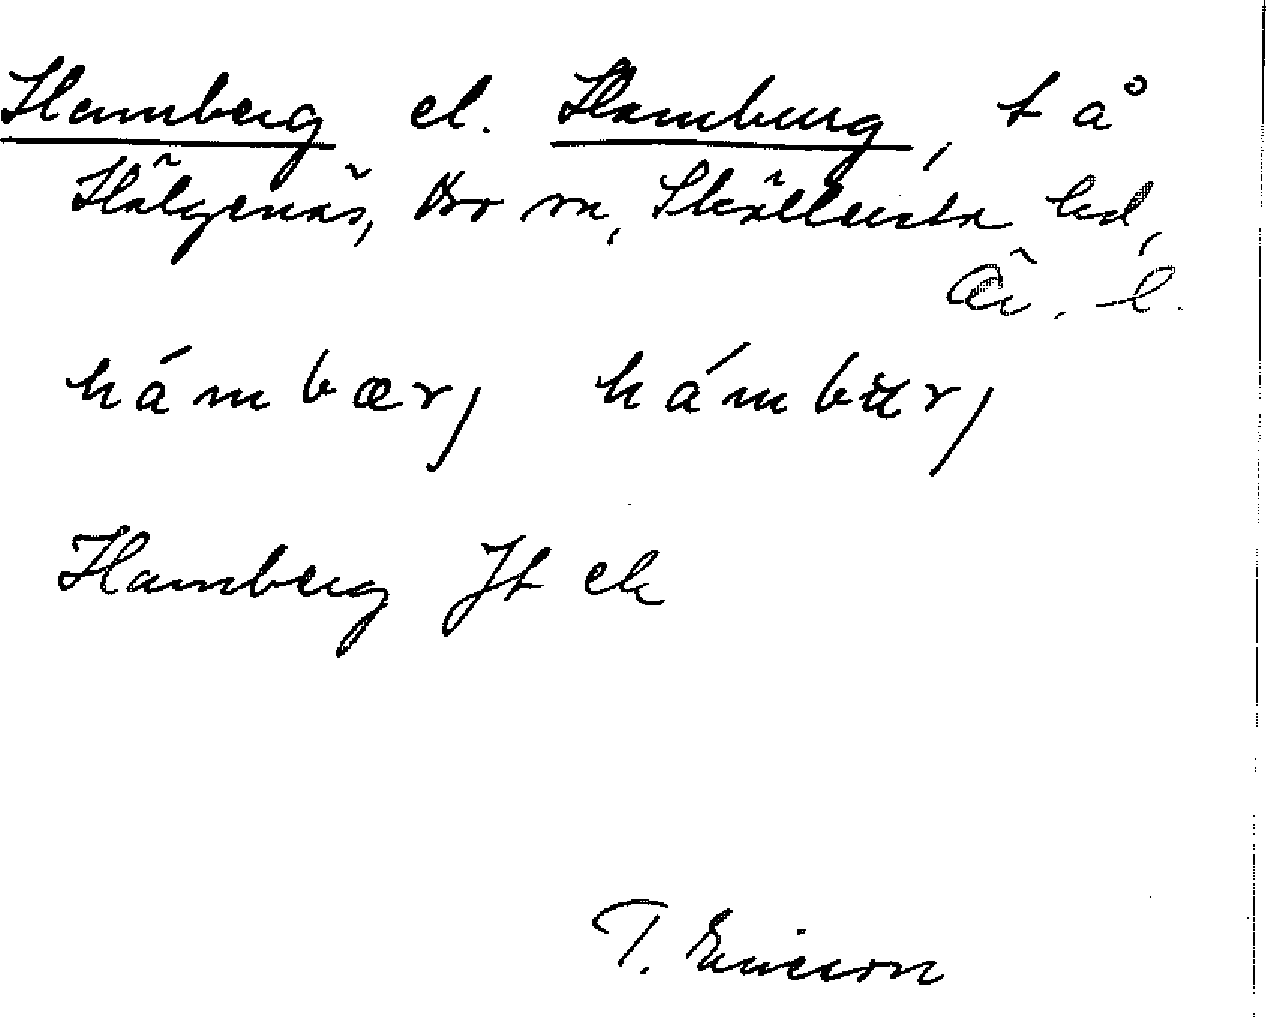 Hamberg el. Hamburg, t å
Hälgenäs, Bro sn, Skällersta hd,
Ä. l.
hámbærj hámbʉrj
Hamberg Jt ek
T. Ericson